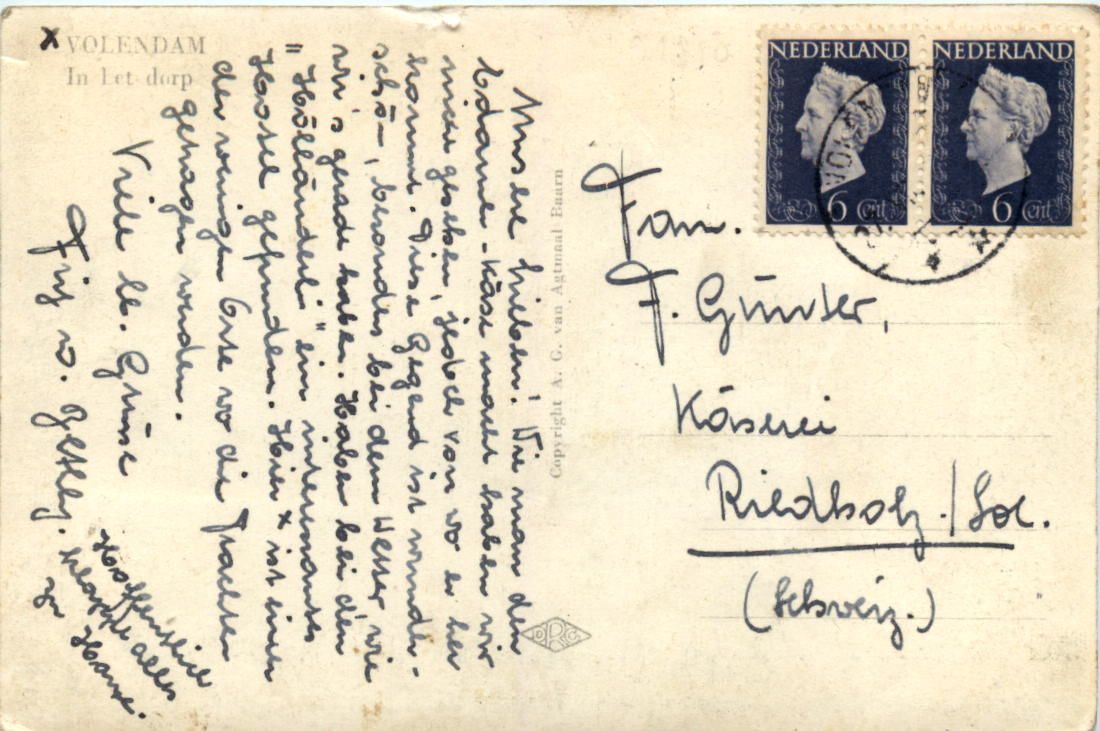 x VOLENDAM
In het dorp
Unsere Lieben! Wie man den
Edamer-Käse macht haben wir
nicht gesehen, jedoch von wo er her
kommt. Diese Gegend ist wunder-
schön, besonders bei dem Wetter wie
wir's gerade haben. Haben bei den
"Holländerli" ein interessantes
Hotel gefunden. Hier x ist einer
der wenigen Orte wo die Trachten
getragen werden.
Viele lb. Grüsse
Fritz u.
Hoffentlich
klappt alles
zu Hause.
Copyright A. C. van Agtmaal Baarn
DRC
NEDERLAND
6 Cent
NEDERLAND
6 Cent
Fam.
F. Günter,
Käserei
Riedholz./Sol.
(Schweiz.)